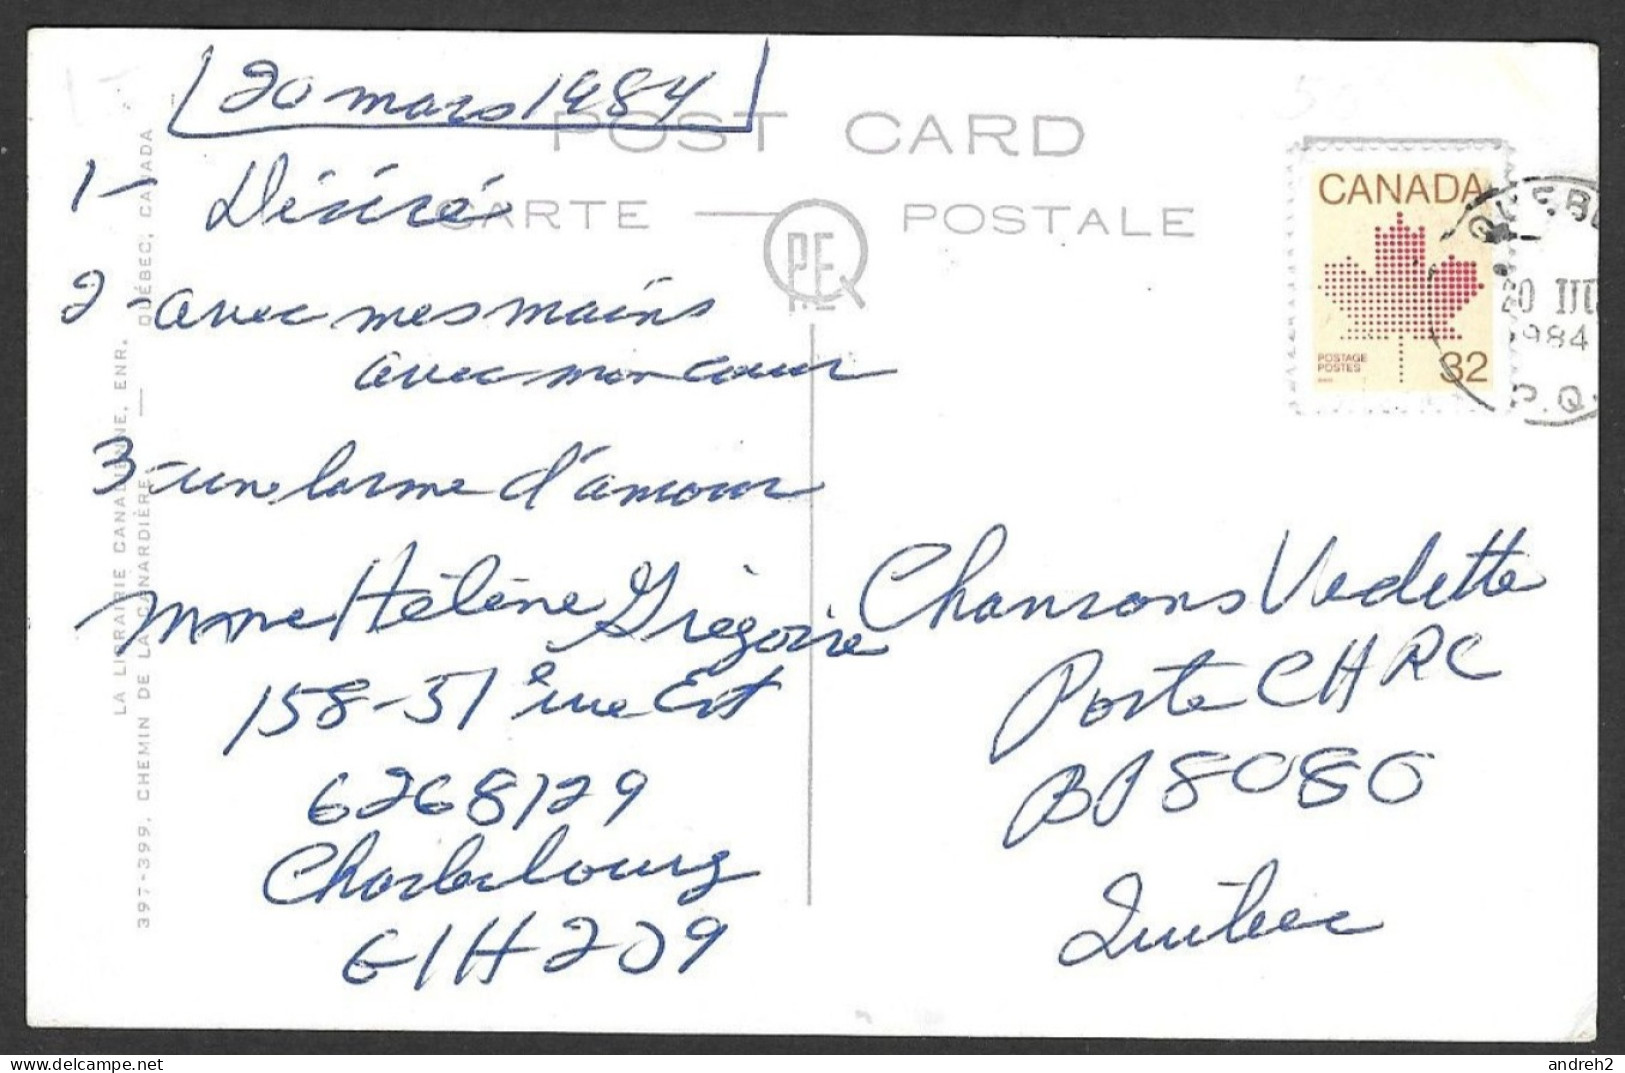 20 mars 1984
POST CARD
CARTE POSTALE
P.E.Q
1- Désiré
2- avec mes mains
avec mon coeur
3- une larme d'amour
Mme Hélène Grégoire
158-51 ème Est
6268129
Charlesbourg
G1H2J9
CANADA
POSTAGE
POSTES
32
QUÉBEC
20 III
1984
P.Q.
Chansons Vedette
Poste CHRC
BP 8080
Québec
LA LIBRAIRIE CANADIENNE, ENR.
397-399, CHEMIN DE LA CANARDIÈRE — QUÉBEC, CANADA
andreh2